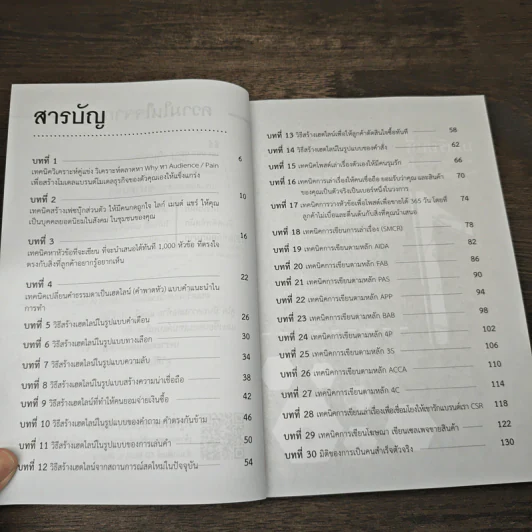 สารบัญ
บทที่ 1
เทคนิควิเคราะห์คู่แข่ง วิเคราะห์ตลาดหา Why หา Audience / Pain 6
เพื่อสร้างโมเดลแบรนด์โมเดลธุรกิจของตัวคุณเองให้แข็งแกร่ง
บทที่ 2
เทคนิคสร้างเฟซบุ๊กส่วนตัว ให้มีคนกดถูกใจ ไลก์ เมนต์ แชร์ ให้คุณ 10
เป็นบุคคลยอดนิยมในสังคม ในชุมชนของคุณ
บทที่ 3 16
เทคนิคหาหัวข้อที่จะเขียน ที่จะนำเสนอได้ทันที 1,000 หัวข้อ ที่ตรงใจ
ตรงกับสิ่งที่ลูกค้าอยากรู้อยากเห็น
บทที่ 4 22
เทคนิคเปลี่ยนคำธรรมดาเป็นเฮดไลน์ (คำพาดหัว) แบบคำแนะนำใน
การทำ
บทที่ 5 วิธีสร้างเฮดไลน์ในรูปแบบคำเตือน 26
บทที่ 6 วิธีสร้างเฮดไลน์ในรูปแบบทางเลือก 30
บทที่ 7 วิธีสร้างเฮดไลน์ในรูปแบบความลับ 34
บทที่ 8 วิธีสร้างเฮดไลน์ในรูปแบบสร้างความน่าเชื่อถือ 38
บทที่ 9 วิธีสร้างเฮดไลน์ที่ทำให้คนยอมจ่ายเงินซื้อ 42
บทที่ 10 วิธีสร้างเฮดไลน์ในรูปแบบของคำถาม คำตรงกันข้าม 46
บทที่ 11 วิธีสร้างเฮดไลน์ในรูปแบบของการเล่นคำ 50
บทที่ 12 วิธีสร้างเฮดไลน์จากสถานการณ์สดใหม่ในปัจจุบัน 54
บทที่ 13 วิธีสร้างเฮดไลน์เพื่อให้ลูกค้าตัดสินใจซื้อทันที 58
บทที่ 14 วิธีสร้างเฮดไลน์ในรูปแบบของคำสั่ง 62
บทที่ 15 เทคนิคโพสต์เล่าเรื่องตัวเองให้มีคนรุมรัก 66
บทที่ 16 เทคนิคการเล่าเรื่องให้คนเชื่อถือ ยอมรับว่าคุณ และสินค้า 70
ของคุณเป็นตัวจริงเป็นเบอร์หนึ่งในวงการ
บทที่ 17 เทคนิคการวางหัวข้อเพื่อโพสต์เพื่อขายได้ 365 วัน โดยที่ 74
ลูกค้าไม่เบื่อและตื่นเต้นกับสิ่งที่คุณนำเสนอ
บทที่ 18 เทคนิคการเขียนการเล่าเรื่อง (SMCR) 78
บทที่ 19 เทคนิคการเขียนตามหลัก AIDA 82
บทที่ 20 เทคนิคการเขียนตามหลัก FAB 86
บทที่ 21 เทคนิคการเขียนตามหลัก PAS 90
บทที่ 22 เทคนิคการเขียนตามหลัก APP 94
บทที่ 23 เทคนิคการเขียนตามหลัก BAB 98
บทที่ 24 เทคนิคการเขียนตามหลัก 4P 102
บทที่ 25 เทคนิคการเขียนตามหลัก 3S 106
บทที่ 26 เทคนิคการเขียนตามหลัก ACCA 110
บทที่ 27 เทคนิคการเขียนตามหลัก 4C 114
บทที่ 28 เทคนิคการเขียนเล่าเรื่องเพื่อเชื่อมโยงให้เขารักแบรนด์เรา CSR 118
บทที่ 29 เทคนิคการเขียนโฆษณา เขียนเซลเพจขายสินค้า 122
บทที่ 30 มิติของการเป็นคนสำเร็จตัวจริง 130